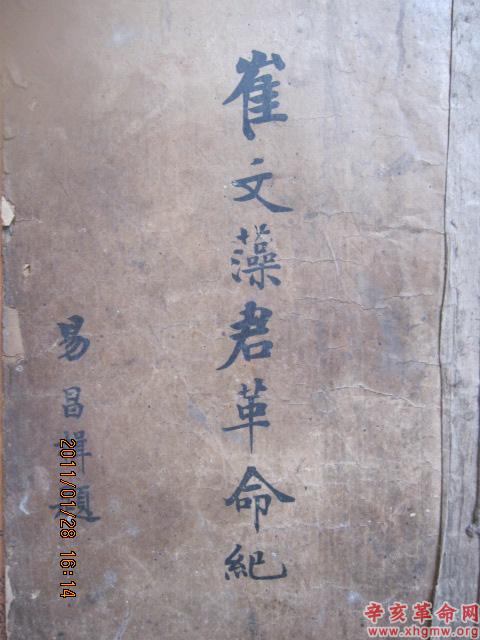 崔文藻君革命紀
易昌楫題
2011/01/28 16:14
辛亥革命网
www.xhgmw.org